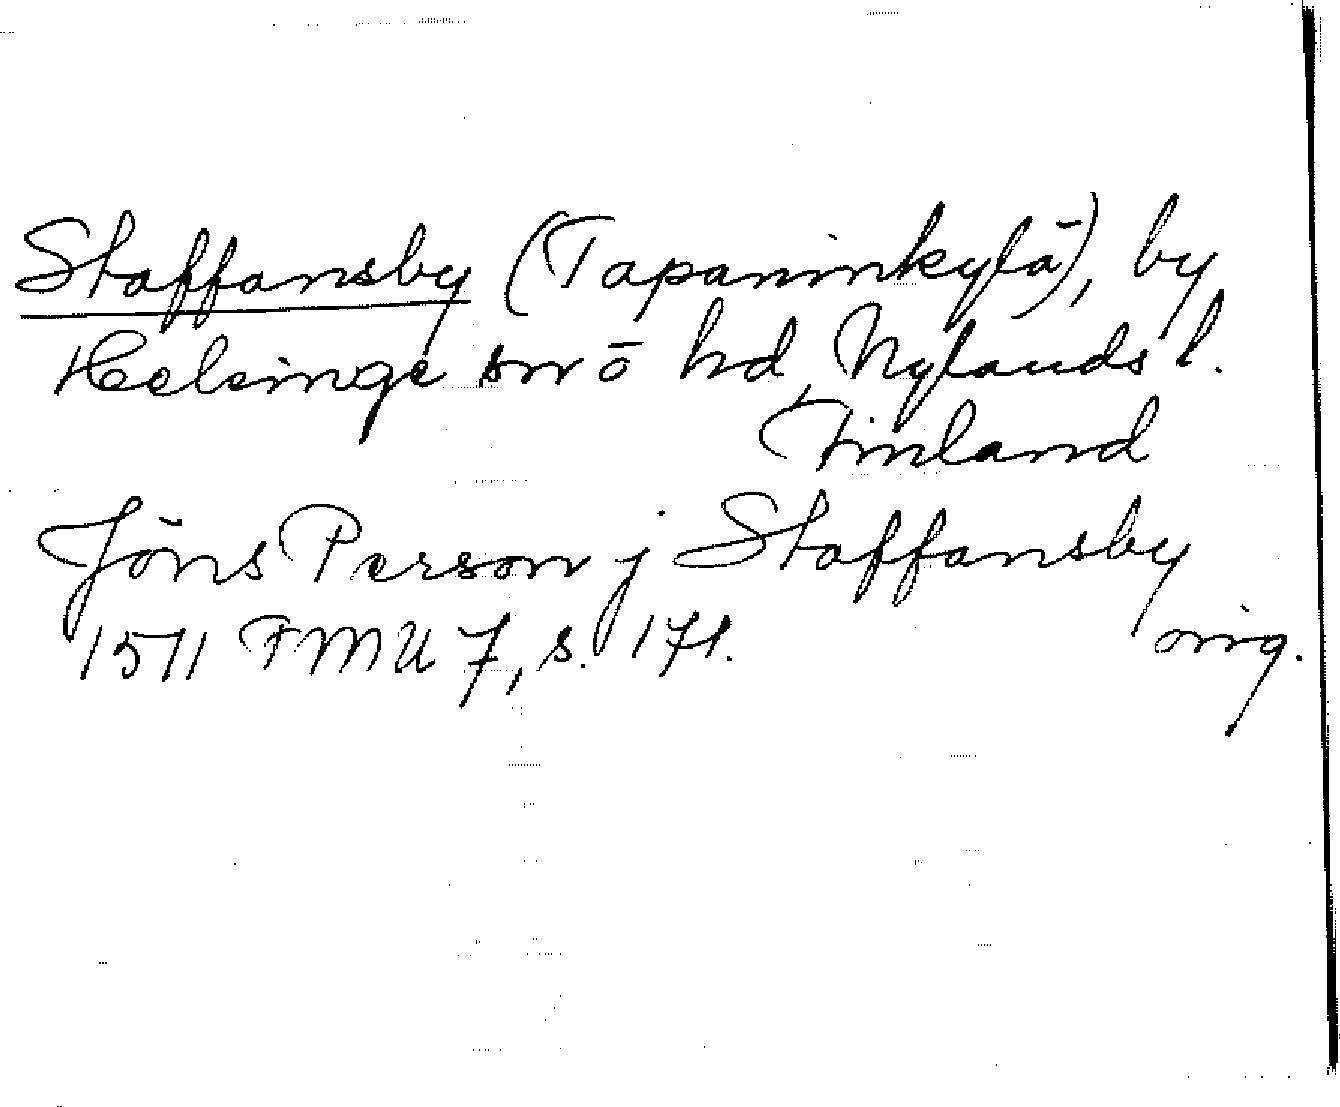 Staffansby (Tapaninkylä), by
Helsinge sn o hd, Nylands l.
Finland
Jöns Person j Staffansby
1511 FMU 7, s. 171. orig.